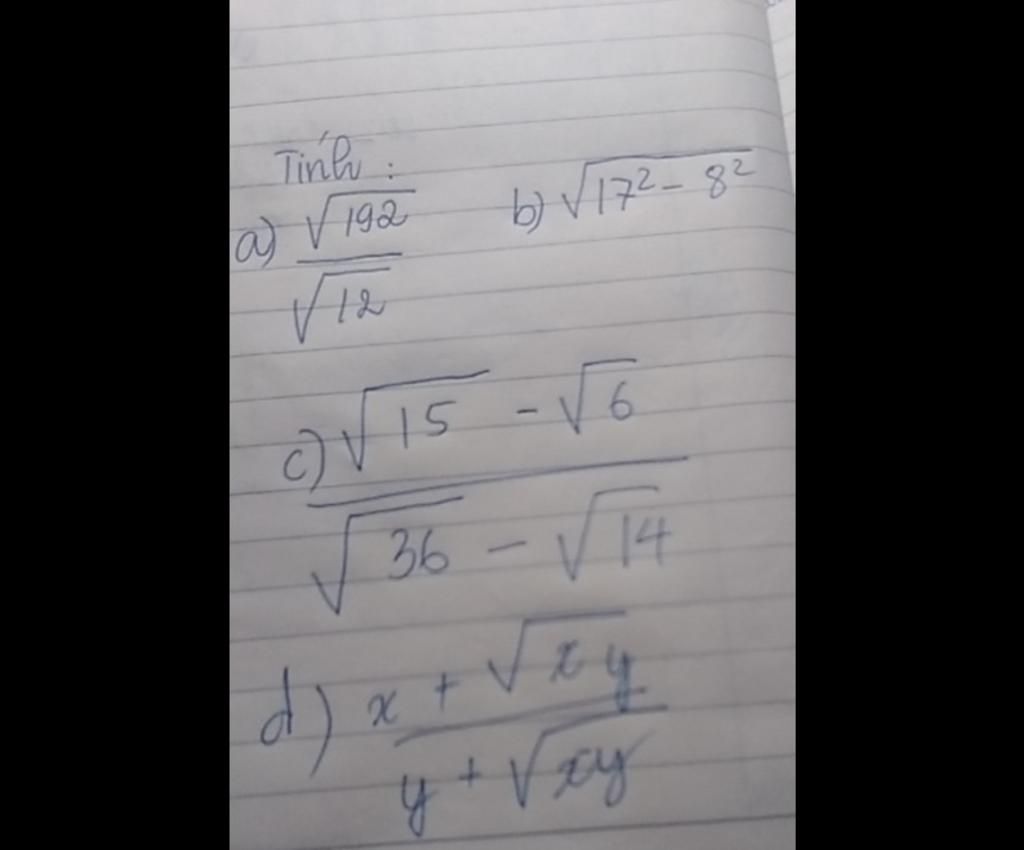 Tính:
a) √192 / √12 b) √(17² - 8²)
c) (√15 - √6) / (√36 - √14)
d) (x + √xy) / (y + √xy)